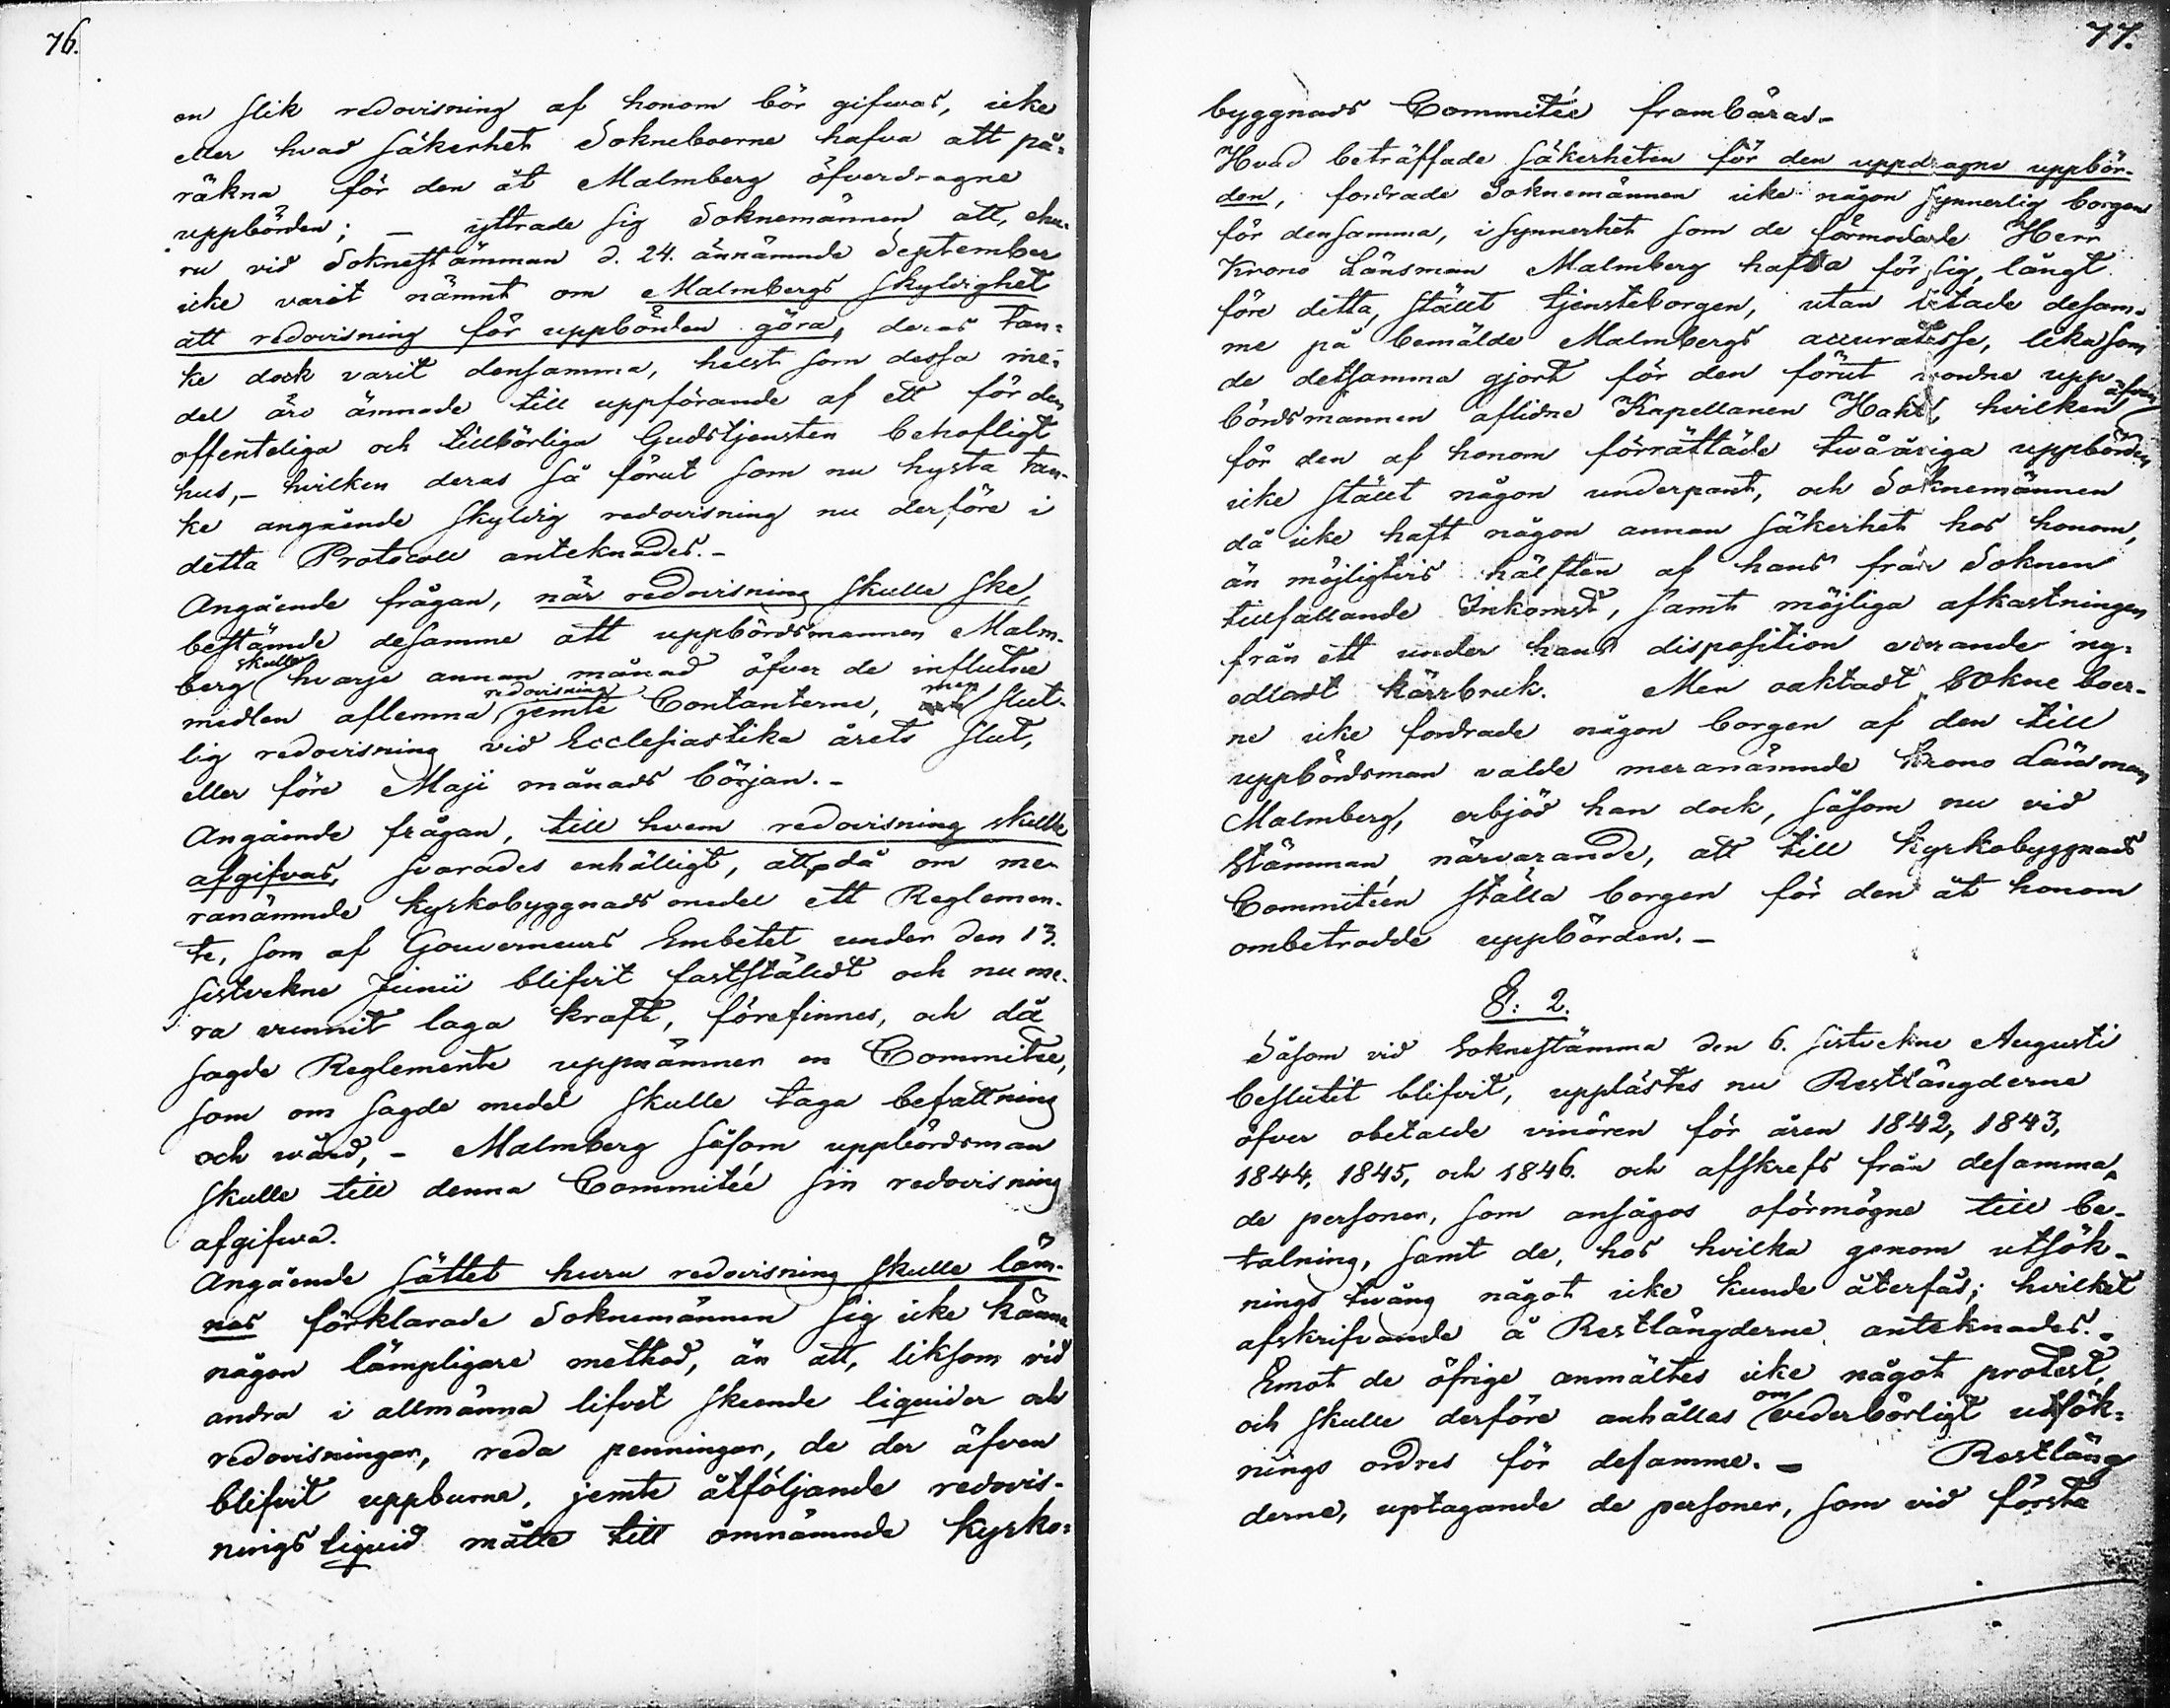 76.
en slik redovisning af honom bör gifwas, icke
eller hvad säkerhet Sokneboerne hafva att på-
räkna för den åt Malmberg öfverdragne
uppbörden; — yttrade sig Soknemännen att, ehu-
ru vid Soknestämman d. 24. ännämnde September
icke varit nämnt om Malmbergs skyldighet
att redovisning för uppbörden göra, deras tan-
ke dock varit densamma, helst som dessa me-
del äro ämnade till uppförande af ett för den
offenteliga och tillbörliga Gudstjensten behofligt
hus, – hvilken deras så förut som nu hysta tan-
ke angående skyldig redovisning nu derföre i
detta Protocoll anteknades. –
Angående frågan, när redovisning skulle ske,
bestämde desamme att uppbördsmannen Malm-
berg skulle hvarje annan månad öfver de influtne
medlen aflemna redovisning jemte Contanterne, men slut-
lig redovisning vid Ecclesiastika årets slut,
eller före Maji månads början. –
Angående frågan, till hvem redovisning skulle
afgifvas, svarades enhälligt, att då om me-
ranämnde kyrkobyggnads medel ett Reglemen-
te, som af Gouverneurs Embetet under den 13.
sistvekne Junii blifvit fastställdt och nu me-
ra vunnit laga kraft, förefinnes, och då
sagde Reglemente uppnämner en Committee,
som om sagde medel skulle taga befattning
och wård, – Malmberg såsom uppbördsman
skulle till denna Committéé sin redovisning
afgifwa.
Angående sättet huru redovisning skulle läm-
nas förklarade Soknemännen sig icke känna
någon lämpligare method, än att, liksom vid
andra i allmänna lifvet skeende liquider och
redovisningar, reda penningar, de der äfven
blifvit uppburna, jemte åtföljande redovis-
nings liquid måtte till omnämnde kyrko-
77.
byggnads Committéé frambäras –
Hvad beträffade säkerheten för den uppdragne uppbör-
den, fordrade Soknemännen icke någon synnerlig borgen
för densamma, i synnerhet som de förmodade Herr
Krono Länsman Malmberg hafva för sig, långt
före detta, ställt tjensteborgen, utan litade desam-
me på bemälde Malmbergs accuratesse, lika som
de detsamma gjort för den förut wordne upp-
bördsmannen aflidne Kapellanen Hahl, hvilken äfven
för den af honom förrättade twååriga uppbörden
icke ställt någon underpant, och Soknemännen
då icke haft någon annan säkerhet hos honom,
än möjligtvis hälften af hans från Soknen
tillfallande Inkomst, samt möjliga afkastningen
från ett under hans disposition varande ny-
odladt kärrbruk. Men oaktadt Sokne boer-
ne icke fordrade någon borgen af den till
uppbördsman valde meranämnde Krono Länsman
Malmberg, erbjöd han dock, såsom nu vid
Stämman närvarande, att till Kyrkobyggnads
Committéen ställa borgen för den åt honom
ombetrodde uppbörden. –
§: 2.
Såsom vid Soknestämma den 6. sistvekne Augusti
beslutit blifvit, upplästes nu Restlängderne
öfver obetalde vinören för åren 1842, 1843,
1844, 1845, och 1846. och afskrefs från desamma,
de personer, som ansågos oförmögne till be-
talning, samt de, hos hvilka genom utsök-
nings twång något icke kunde återfås; hvilket
afskrifvande å Restlängderne anteknades. –
Emot de öfrige anmältes icke något protest,
och skulle derföre anhållas om vederbörligt utsök-
nings ordres för desamme. – Restläng
derne, uptagande de personer, som vid första